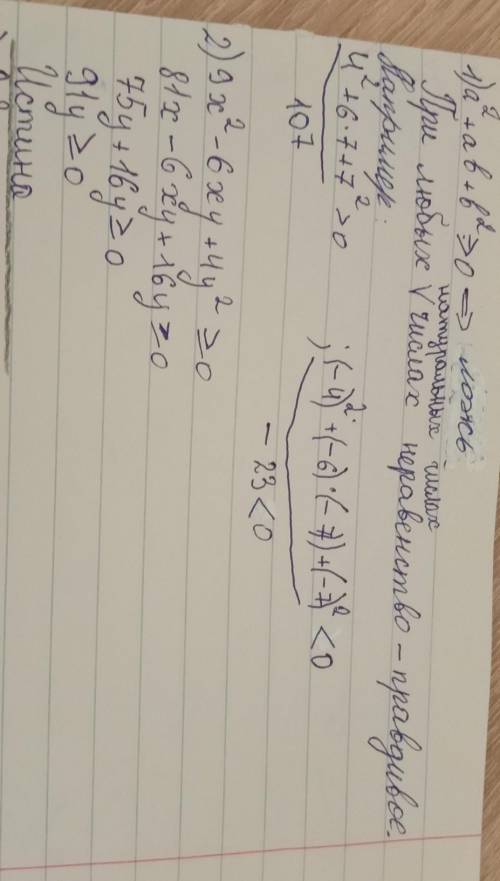 1) a² + ab + b² ≥ 0 => ложь
При любых натуральных числах
числах неравенство - правдивое.
Например:
4² + 6·7 + 7² > 0 ; (-4)² + (-6)·(-7) + (-7)² < 0
107 - 23 < 0
2) 9x² - 6xy + 4y² ≥ 0
81x - 6xy + 16y ≥ 0
75y + 16y ≥ 0
91y ≥ 0
Истина